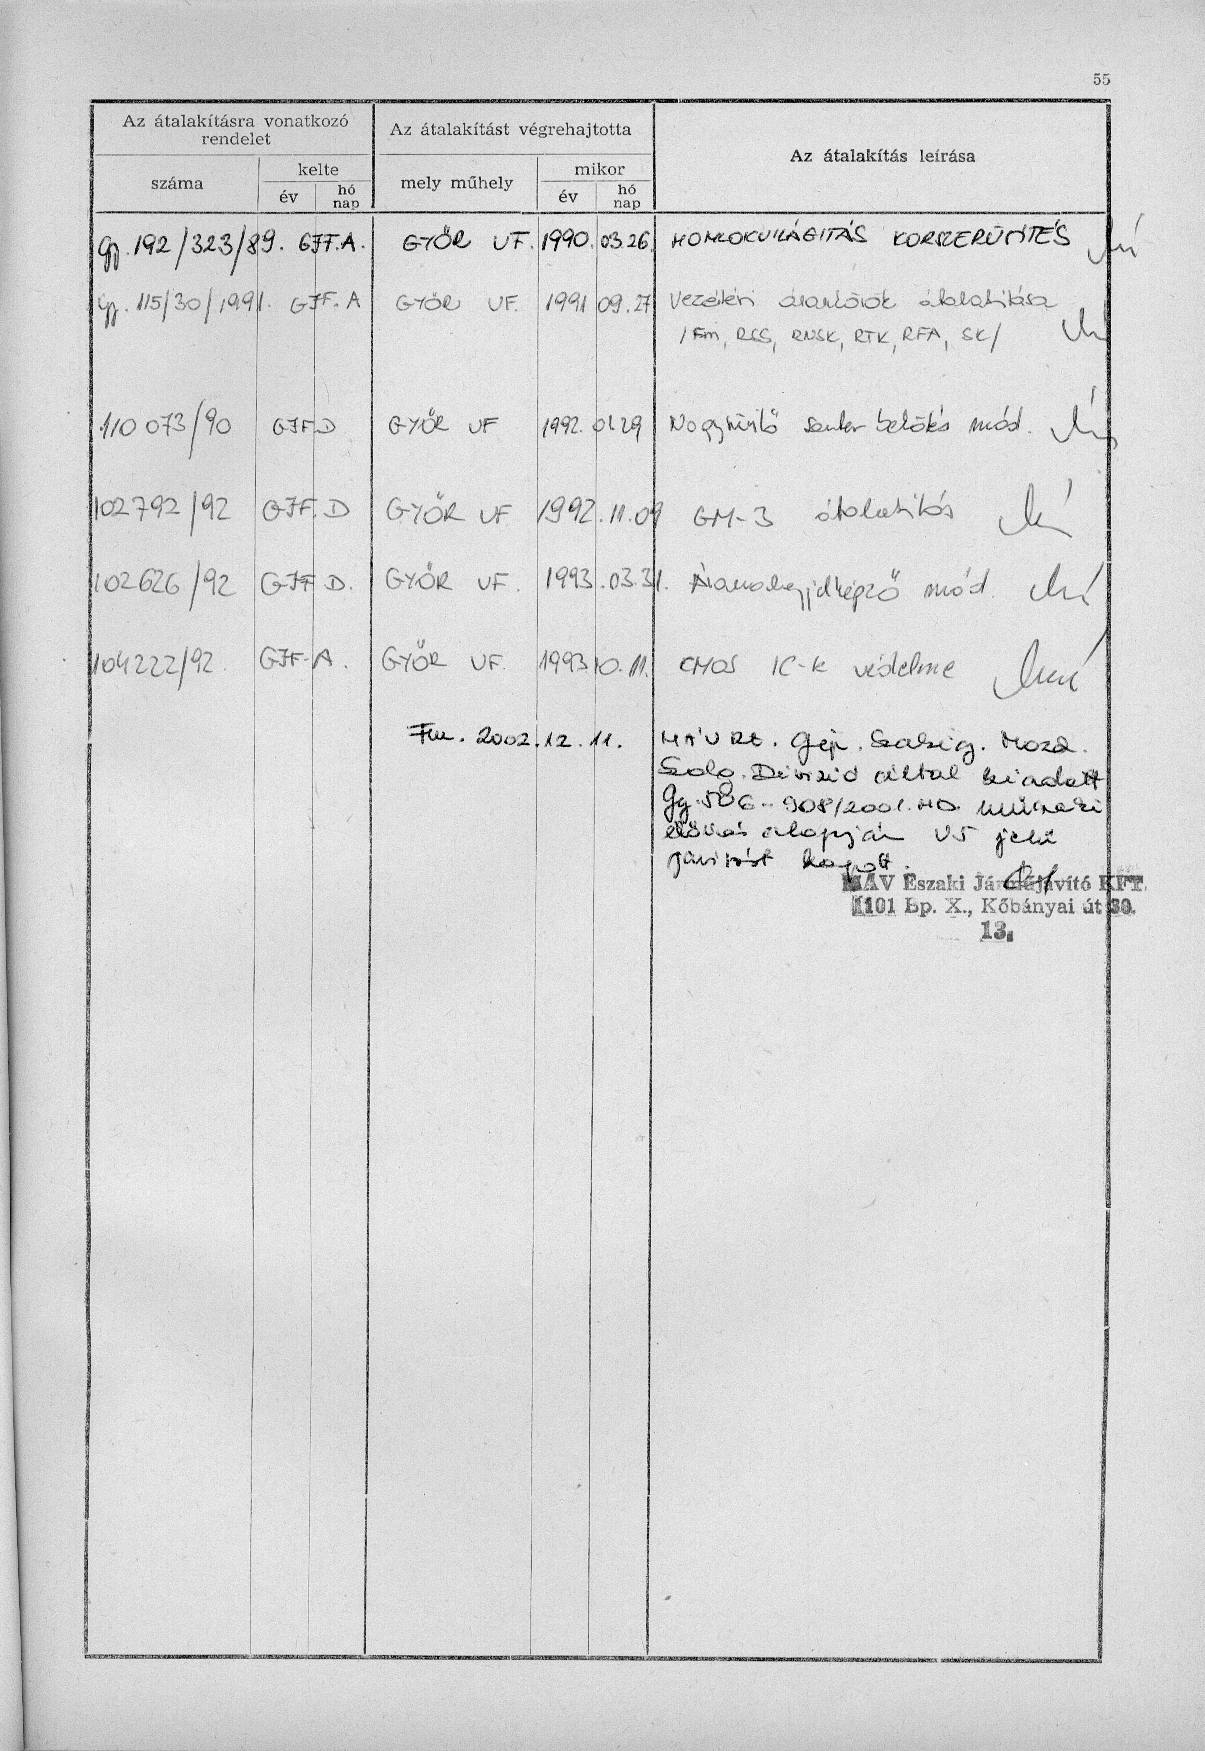 55
Az átalakításra vonatkozó rendelet
Az átalakítást végrehajtotta
Az átalakítás leírása
száma
kelte
mely műhely
mikor
év
hó nap
év
hó nap
Gg. 192/323/89. GJF.A. GYŐR VF. 1990. 03.26. HOMLOKVILÁGITÁS KORSZERÜSITÉS
Gg. 115/30/1991. GJF.A GYŐR VF. 1991 09.27 Vezérléri áramkörök átalakitása
/Fm, RSS, RNSK, RTK, RFA, SK/
110 073/90 GJF.D GYŐR VF 1992. 01 29 Nagyhűtő sönk betörés mód.
102792/92 GJF.D GYŐR VF 1992.11.09 GM-3 átalakitás
102626/92 GJF D. GYŐR VF. 1993.03.31. Áramalapjelképző mód.
104222/92. GJF-A. GYŐR VF. 1993 10.11. CMOS IC-k védelme
Fm. 2002.12.11. MÁV Rt. Gép. Szakig. Mozd.
Szolg. Divizió által kiadott
Gg. 586-908/2001. MD. műszaki
előirás alapján V5 jelű
javitást kapott.
MÁV Északi Járműjavító KFT.
1101 Bp. X., Kőbányai út 30.
13.